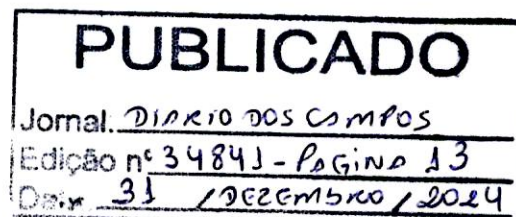 PUBLICADO
Jornal. DIARIO DOS CAMPOS
Edição nº 34841 - PAGINA 13
Data 31 / DEZEMBRO / 2024